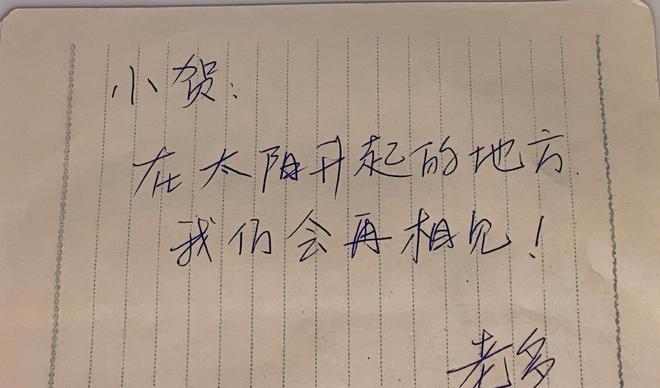 小贺：
在太阳升起的地方.
我们会再相见！
老多